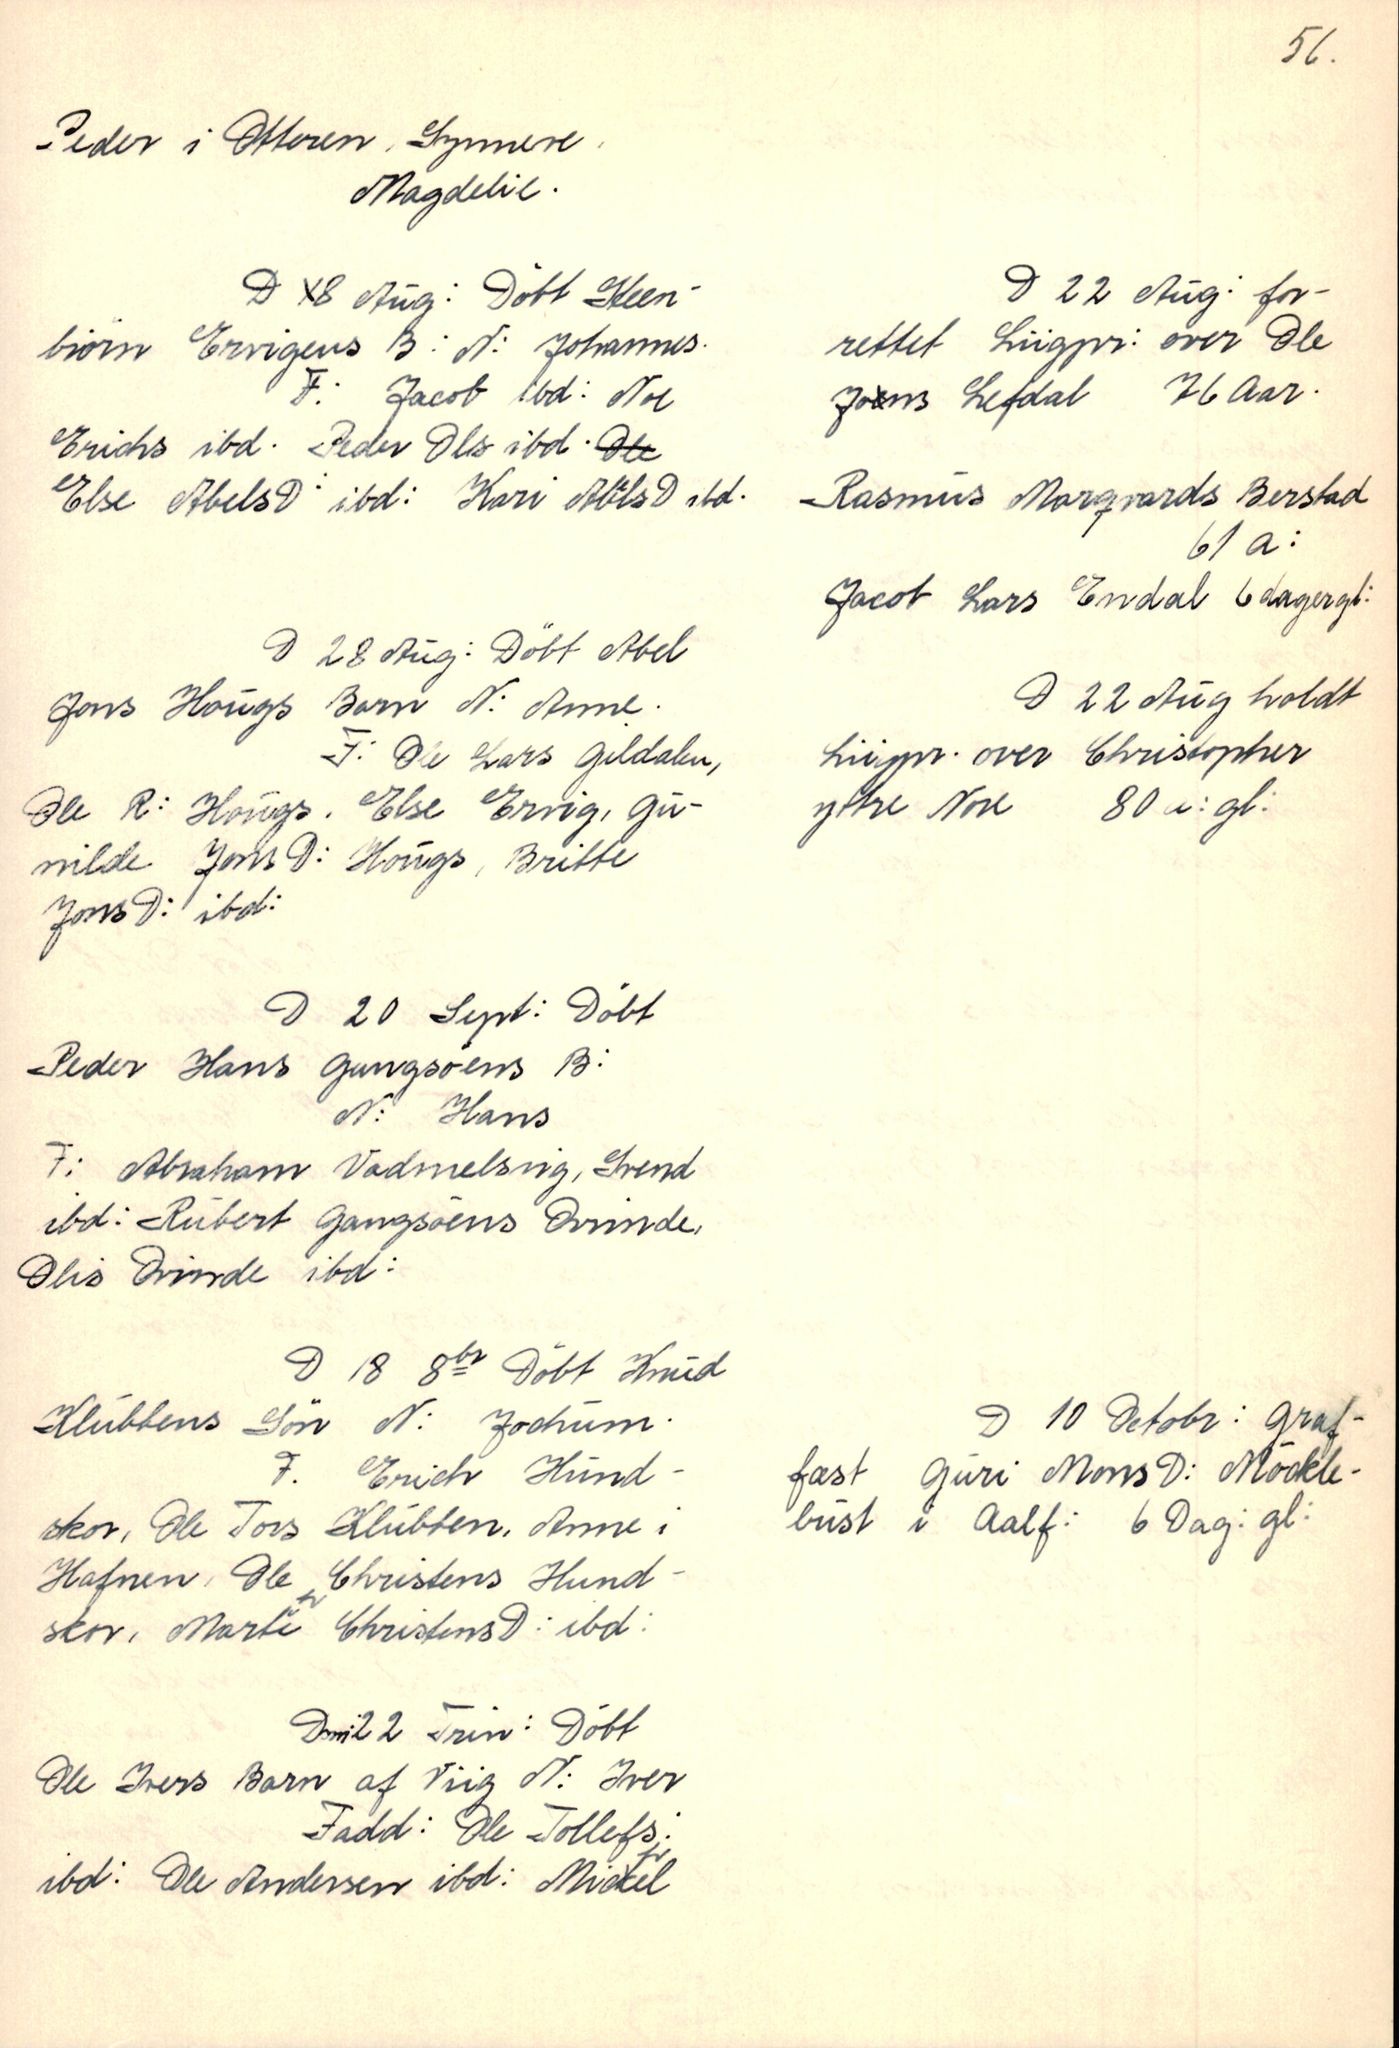 56.
Peder i Otteren, Synneve,
Magdelil.
D 8 Aug: Döbt Steen-
biörn Ervigens B: N: Johannes.
F: Jacob ibd: Noe
Erichs ibd. Peder Ols ibd. Ole
Else AbelsD: ibd: Kari AbilsD ibd.
D 28 Aug: Döbt Abel
Jons Hougs Barn N: Anne.
F: Ole Lars Gildalen,
Ole R: Hougs. Else Ervig, Gu-
nilde JonsD: Hougs, Britte
JonsD: ibd:
D 20 Sept: Döbt
Peder Hans Gangsöens B:
N: Hans
F: Abraham Vadmelsvig, Svend
ibd: Rubert Gangsöens Qvinde,
Olis Qvinde ibd:
D 18 8br Döbt Knud
Klubbens Sön N: Jochum.
F. Erich Hund-
skor, Ole Tors Klubben, Anne i
Hafnen, Ole Christens Hund-
skor, Marte ChristensD: ibd:
Dom 22 Trin: Döbt
Ole Ivers Barn af Viig N: Iver
Fadd: Ole Tollefs:
ibd: Ole Andersen ibd: Mickel
D 22 Aug: for-
rettet Liigpr: over Ole
Jons Lefdal 76 Aar.
Rasmus Marqvards Berstad
61 a:
Jacob Lars Endal 6 dager gl:
D 22 Aug holdt
Liigpr. over Christopher
yttre Nore 80 a: gl:
D 10 Octobr: Graf-
fæst Guri MonsD: Möckle-
bust i Aalf: 6 Dag: gl: